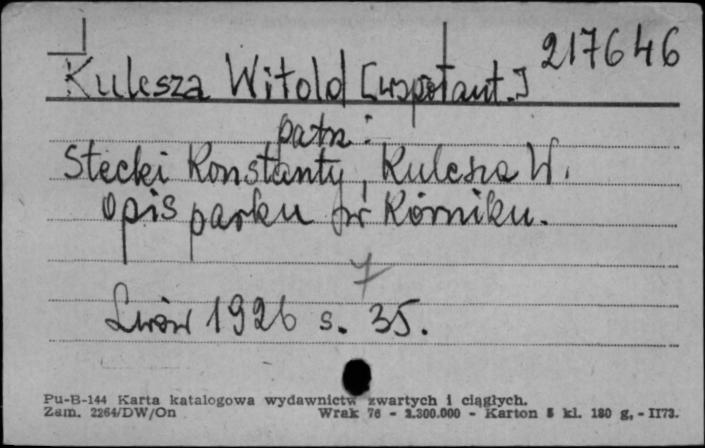 217646
Kulesza Witold [współaut.]
patrz:
Stecki Konstanty, Kulesza W.
Opis parku w Kórniku.
7
Lwów 1926 s. 35.
Pu-B-144 Karta katalogowa wydawnictw zwartych i ciągłych.
Zam. 2264/DW/On Wrak 76 - 2.300.000 - Karton 5 kl. 180 g, - II73.